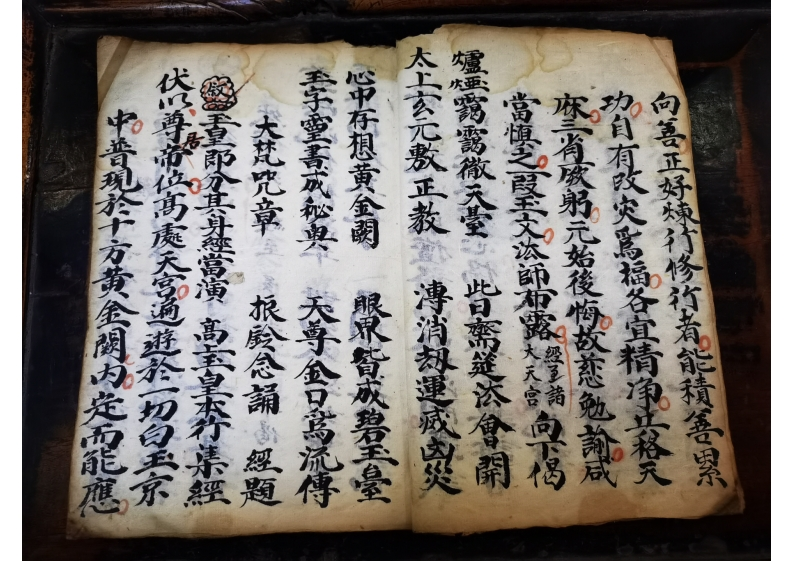 向善正好煉行修行者能積善累
功自有改灾為福各宜精净立移天
麻三肖厥躬元始後悔故慈勉諭咸
當慎之叚玉文法師布露 經至諸大天宫 向下偈
爐煙靄靄徹天臺 此日齋筵法會開
太上玄元敷正教 溥消劫運滅凶災
心中存想黄金闕 眼界皆成碧玉臺
玉字靈書成秘奥 天尊金口為流傳
大梵咒章 振鈴念誦 經題
叙 玉皇即分其身經當演 高上玉皇本行集經
伏以尊居帝位高處天宫遍遊於一切白玉京
中普現於十方黄金闕内定而能應